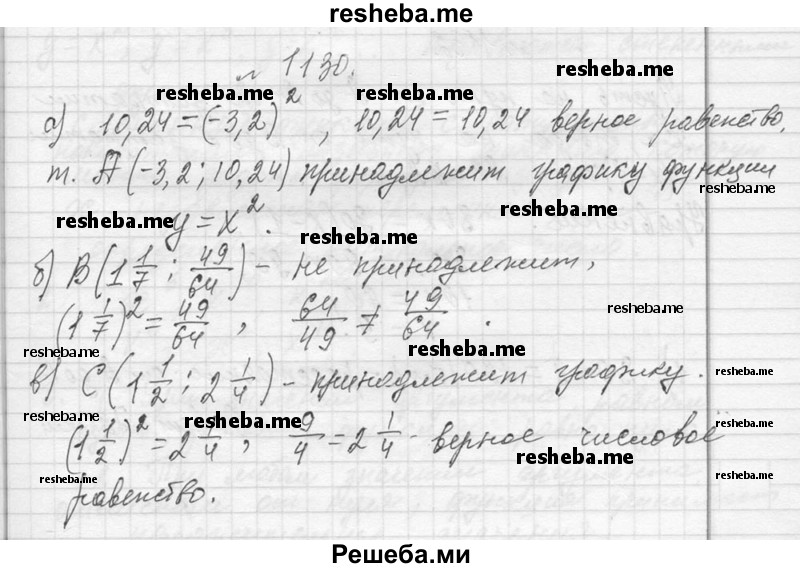 resheba.me
№ 1130.
resheba.me
resheba.me
resheba.me
а) 10,24 = (-3,2)², 10,24 = 10,24 верное равенство,
т. А (-3,2; 10,24) принадлежит графику функции
resheba.me
resheba.me
y = x².
resheba.me
б) В (1 1/7 ; 49/64) - не принадлежит,
resheba.me
(1 1/7)² = 49/64 , 64/49 ≠ 49/64 .
resheba.me
resheba.me
в) С (1 1/2 ; 2 1/4) - принадлежит графику.
resheba.me
resheba.me
resheba.me
(1 1/2)² = 2 1/4 , 9/4 = 2 1/4 - верное числовое
resheba.me
resheba.me
resheba.me
равенство.
Решеба.ми